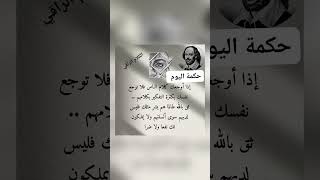 حكمة اليوم
إذا أوجعك كلام الناس فلا توجع
نفسك بكثرة التفكير بكلامهم ..
ثق بالله طالما هم بشر مثلك فليس
لديهم سوى ألسنتهم ولا يملكون
لك نفعا ولا ضرا